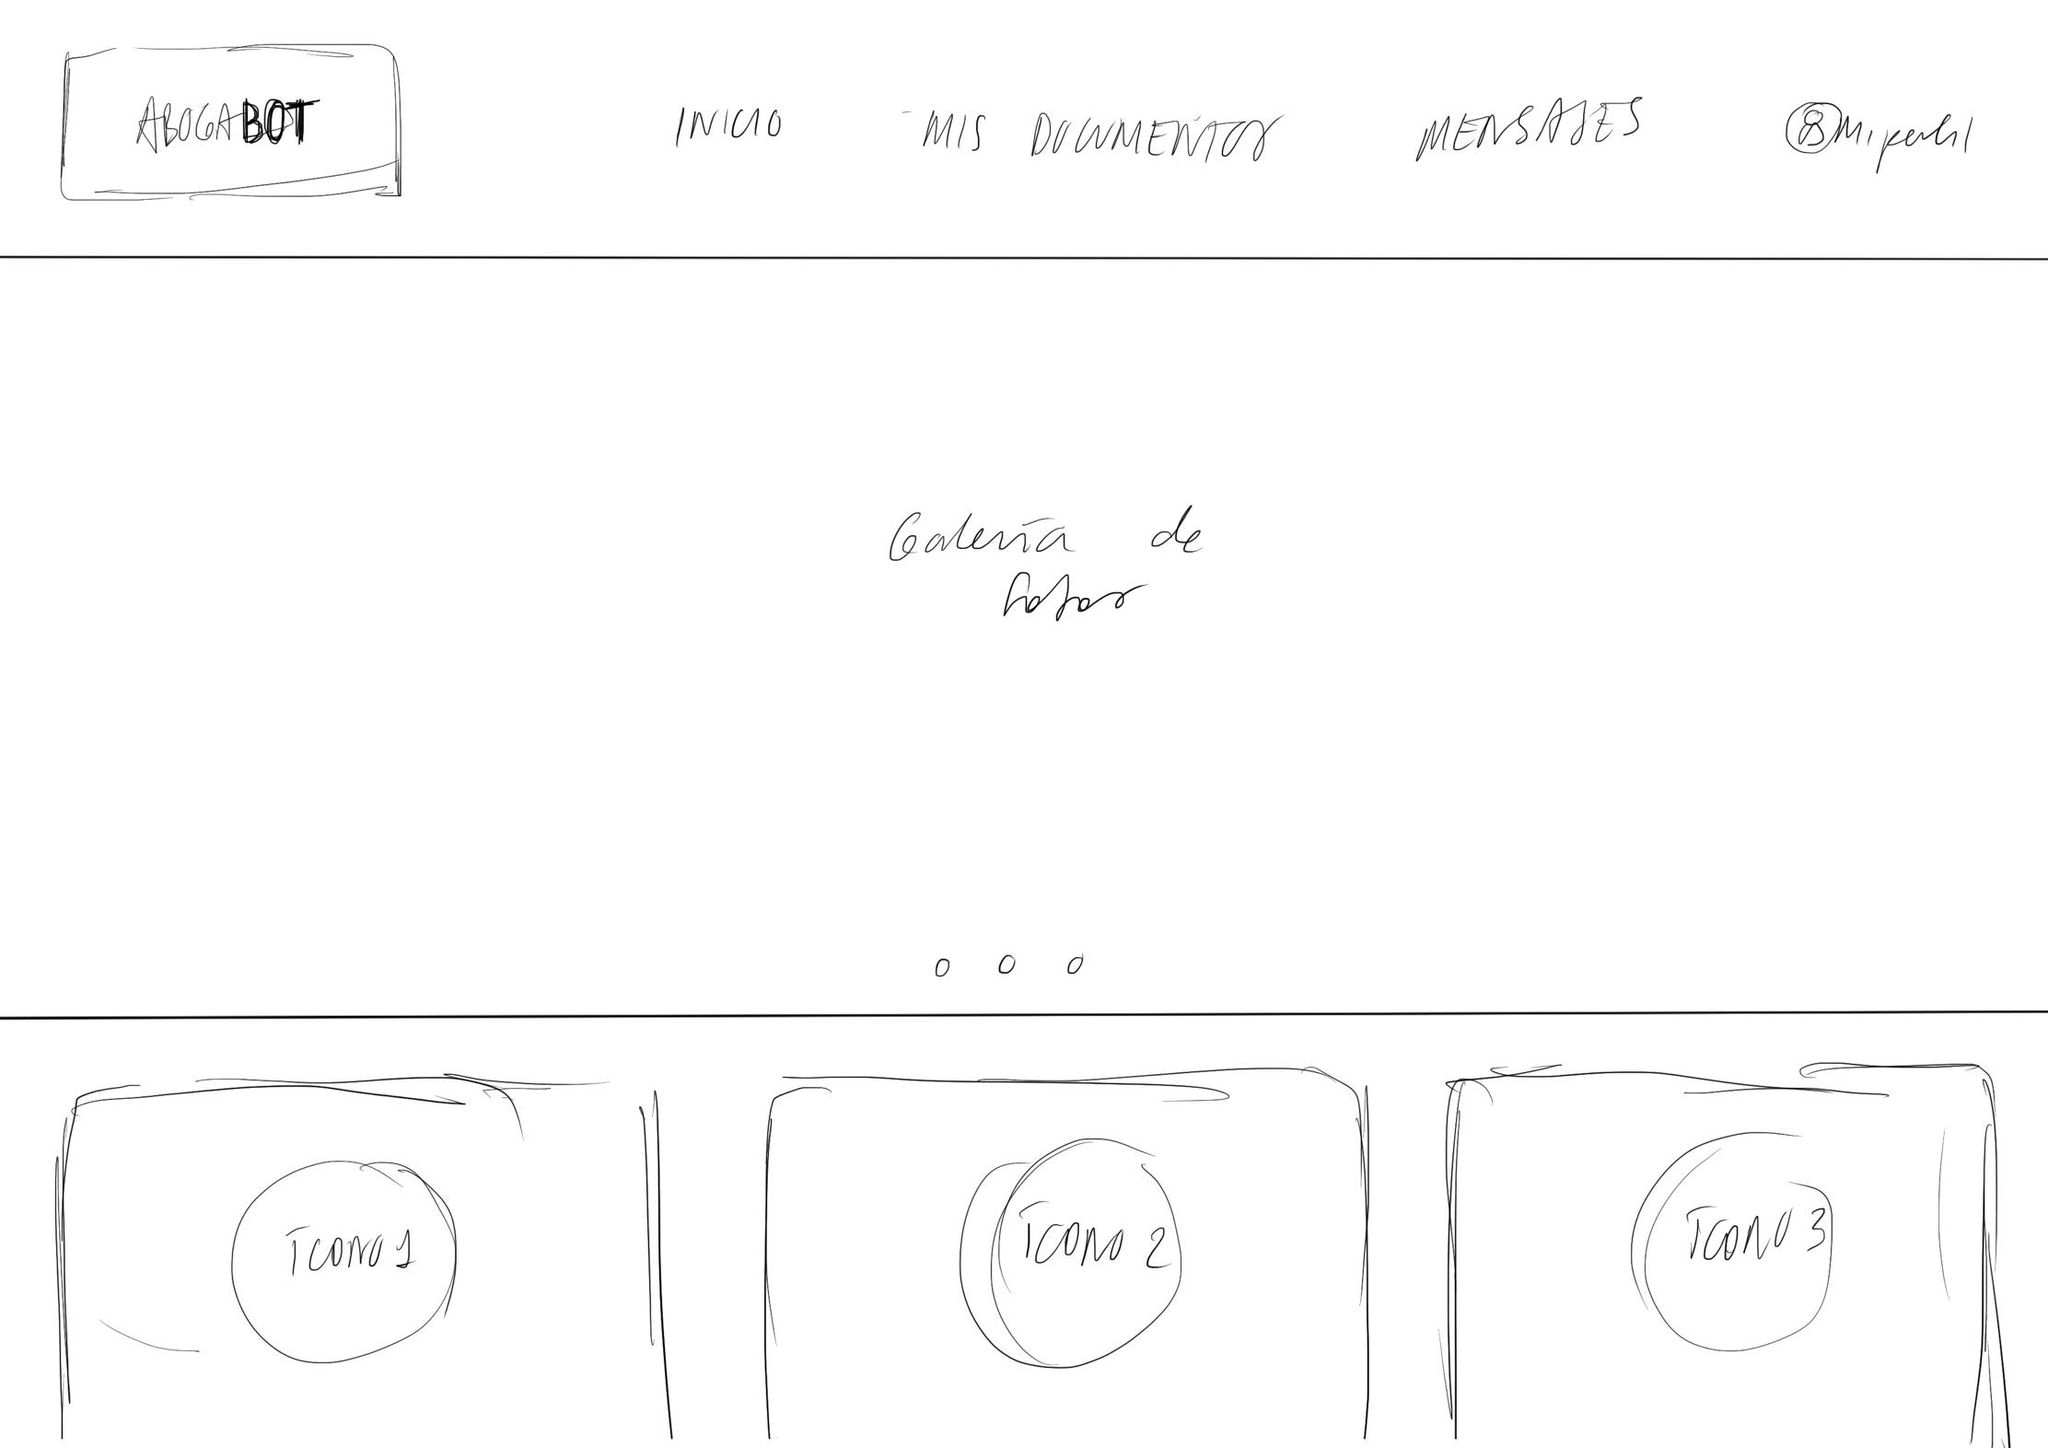 ABOGABOT
INICIO
MIS DOCUMENTOS
MENSAJES
Mi perfil
Galería de
fotos
ICONO 1
ICONO 2
ICONO 3